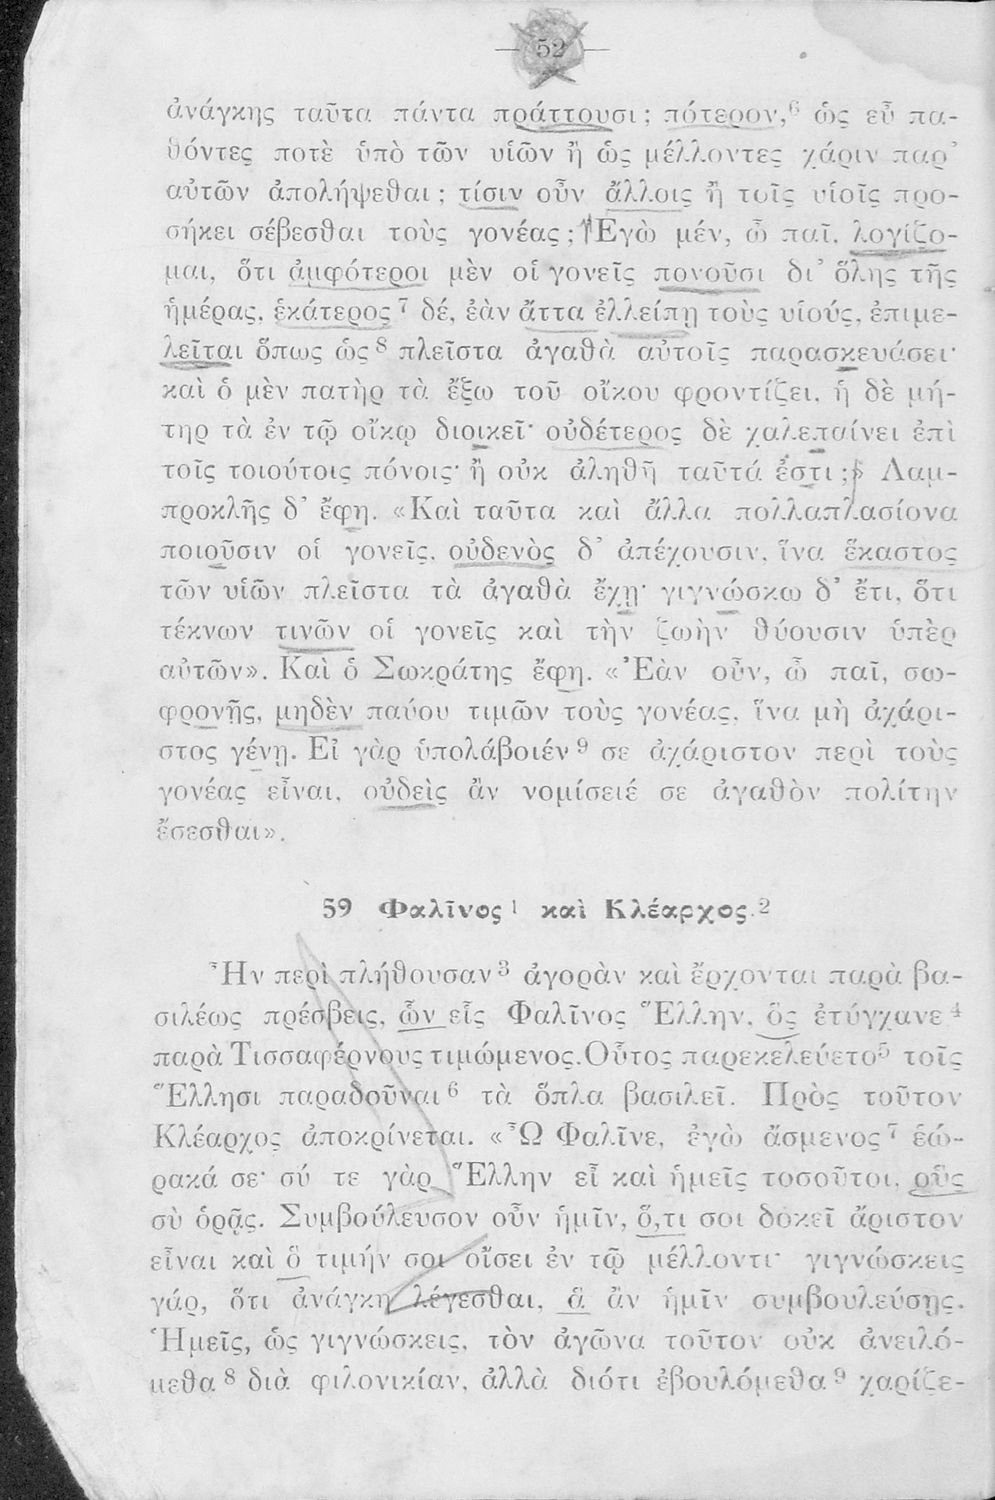 — 52 —
ἀνάγκης ταῦτα πάντα πράττουσι; πότερον,⁶ ὡς εὖ πα-
θόντες ποτὲ ὑπὸ τῶν υἱῶν ἢ ὡς μέλλοντες χάριν παρ’
αὐτῶν ἀπολήψεθαι; τίσιν οὖν ἄλλοις ἢ τοῖς υἱοῖς προ-
σήκει σέβεσθαι τοὺς γονέας; Ἐγὼ μέν, ὦ παῖ, λογίζο-
μαι, ὅτι ἀμφότεροι μὲν οἱ γονεῖς πονοῦσι δι’ ὅλης τῆς
ἡμέρας, ἑκάτερος⁷ δέ, ἐὰν ἄττα ἐλλείπῃ τοὺς υἱούς, ἐπιμε-
λεῖται ὅπως ὡς⁸ πλεῖστα ἀγαθὰ αὐτοῖς παρασκευάσει·
καὶ ὁ μὲν πατὴρ τὰ ἔξω τοῦ οἴκου φροντίζει, ἡ δὲ μή-
τηρ τὰ ἐν τῷ οἴκῳ διοικεῖ· οὐδέτερος δὲ χαλεπαίνει ἐπὶ
τοῖς τοιούτοις πόνοις· ἢ οὐκ ἀληθῆ ταῦτά ἐστι; Λαμ-
προκλῆς δ’ ἔφη. «Καὶ ταῦτα καὶ ἄλλα πολλαπλασίονα
ποιοῦσιν οἱ γονεῖς, οὐδενὸς δ’ ἀπέχουσιν, ἵνα ἕκαστος
τῶν υἱῶν πλεῖστα τὰ ἀγαθὰ ἔχῃ· γιγνώσκω δ’ ἔτι, ὅτι
τέκνων τινῶν οἱ γονεῖς καὶ τὴν ζωὴν θύουσιν ὑπὲρ
αὐτῶν». Καὶ ὁ Σωκράτης ἔφη. «Ἐὰν οὖν, ὦ παῖ, σω-
φρονῇς, μηδὲν παύου τιμῶν τοὺς γονέας, ἵνα μὴ ἀχάρι-
στος γένῃ. Εἰ γὰρ ὑπολάβοιέν⁹ σε ἀχάριστον περὶ τοὺς
γονέας εἶναι, οὐδεὶς ἂν νομίσειέ σε ἀγαθὸν πολίτην
ἔσεσθαι».
59 Φαλῖνος¹ καὶ Κλέαρχος.²
Ἦν περὶ πλήθουσαν³ ἀγορὰν καὶ ἔρχονται παρὰ βα-
σιλέως πρέσβεις, ὧν εἷς Φαλῖνος Ἕλλην, ὃς ἐτύγχανε⁴
παρὰ Τισσαφέρνους τιμώμενος. Οὗτος παρεκελεύετο⁵ τοῖς
Ἕλλησι παραδοῦναι⁶ τὰ ὅπλα βασιλεῖ. Πρὸς τοῦτον
Κλέαρχος ἀποκρίνεται. «Ὦ Φαλῖνε, ἐγὼ ἄσμενος⁷ ἑώ-
ρακά σε· σύ τε γὰρ Ἕλλην εἶ καὶ ἡμεῖς τοσοῦτοι, οὓς
σὺ ὁρᾷς. Συμβούλευσον οὖν ἡμῖν, ὅ,τι σοι δοκεῖ ἄριστον
εἶναι καὶ ὃ τιμήν σοι οἴσει ἐν τῷ μέλλοντι· γιγνώσκεις
γάρ, ὅτι ἀνάγκη λέγεσθαι, ἃ ἂν ἡμῖν συμβουλεύσῃς.
Ἡμεῖς, ὡς γιγνώσκεις, τὸν ἀγῶνα τοῦτον οὐκ ἀνειλό-
μεθα⁸ διὰ φιλονικίαν, ἀλλὰ διότι ἐβουλόμεθα⁹ χαρίζε-